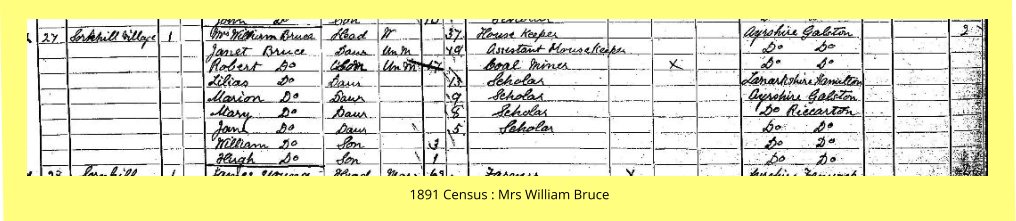 John Do Son 10
27 Sorkhill Village 1 Mrs William Bruce Head W 37 House Keeper Ayrshire Galston 2
Janet Bruce Daur Un M 19 Assistant Housekeeper Do Do
Robert Do Son Un M 17 Coal Miner X Do Do
Lilias Do Daur 13 Scholar Lanarkshire Hamilton
Marion Do Daur 9 Scholar Ayrshire Galston
Mary Do Daur 8 Scholar Do Riccarton
Jane Do Daur 5 Scholar Do Do
William Do Son 3 Do Do
Hugh Do Son 1 Do Do
Young Head 62 Farmer
1891 Census : Mrs William Bruce